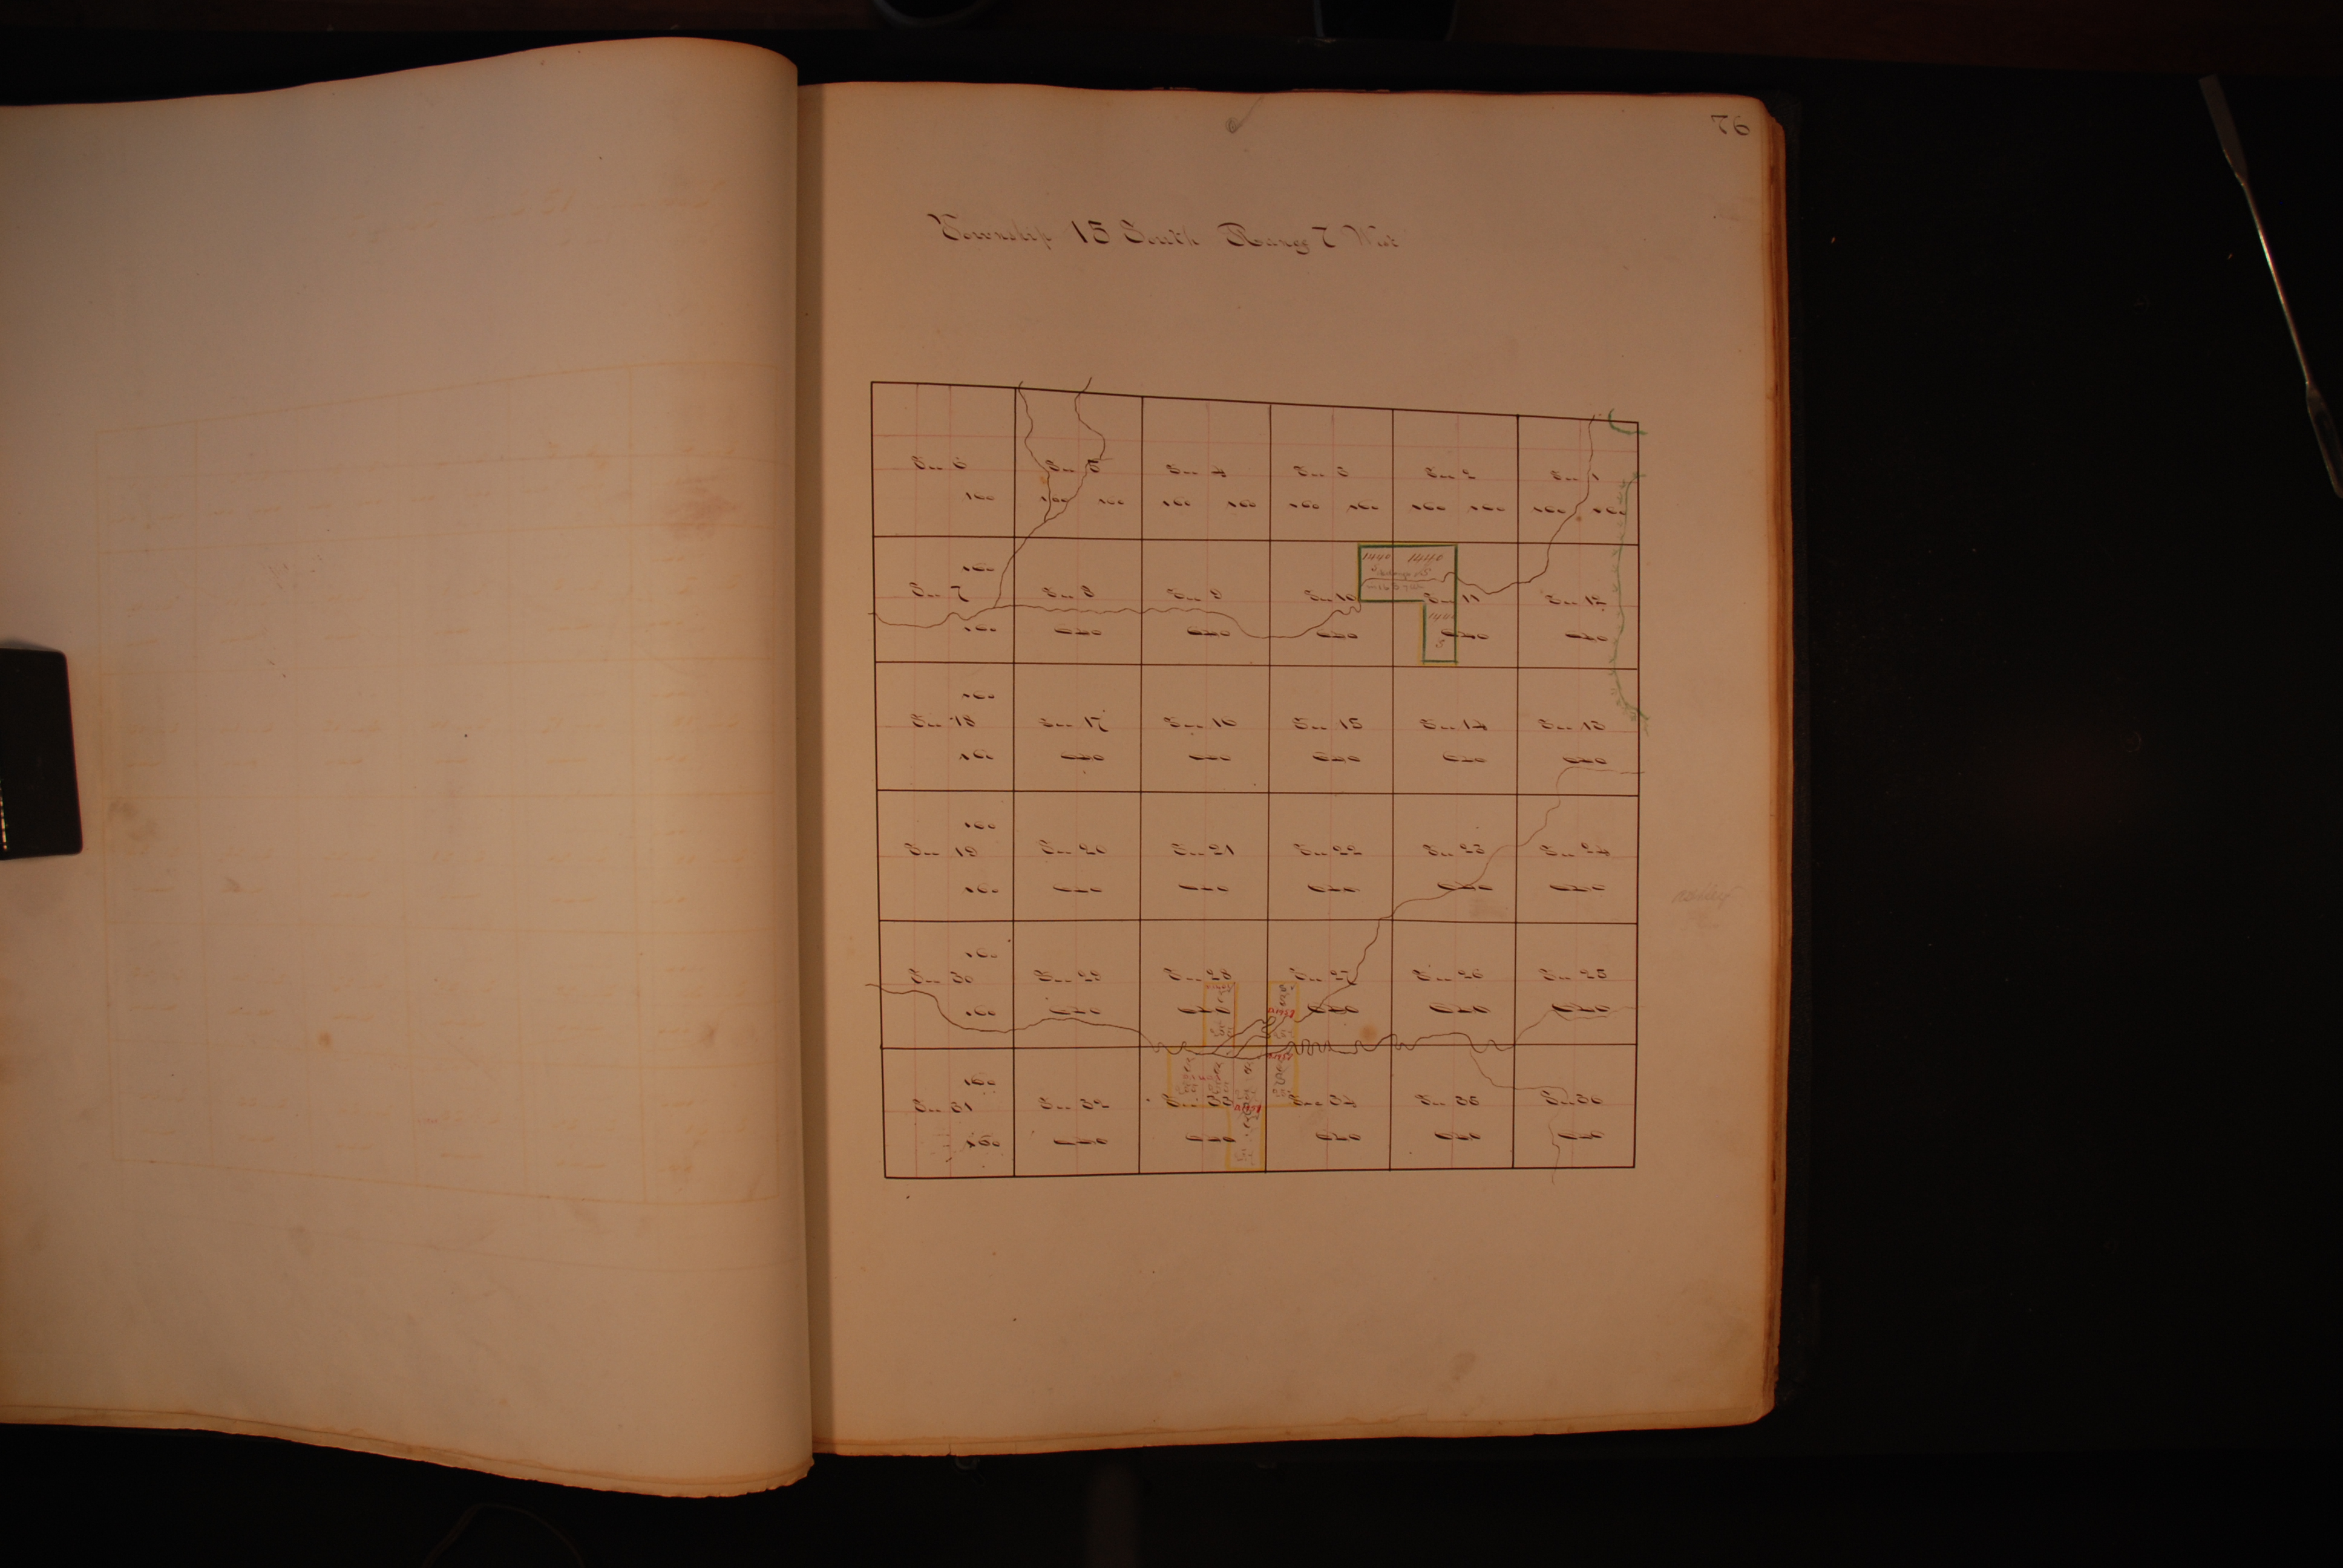 76
Township 15 South Range 7 West
Sec 6 Sec 5 Sec 4 Sec 3 Sec 2 Sec 1
160 160 160 160 160 160 160 160 160 160 160
1440 1440
160
Sec 7 Sec 8 Sec 9 Sec 10 Sec 11 Sec 12
160 640 640 640 640 640
160
Sec 18 Sec 17 Sec 16 Sec 15 Sec 14 Sec 13
160 640 640 640 640 640
160
Sec 19 Sec 20 Sec 21 Sec 22 Sec 23 Sec 24
160 640 640 640 640 640
160
Sec 30 Sec 29 Sec 28 Sec 27 Sec 26 Sec 25
160 640 640 640 640 640
160
Sec 31 Sec 32 Sec 33 Sec 34 Sec 35 Sec 36
160 640 640 640 640 640